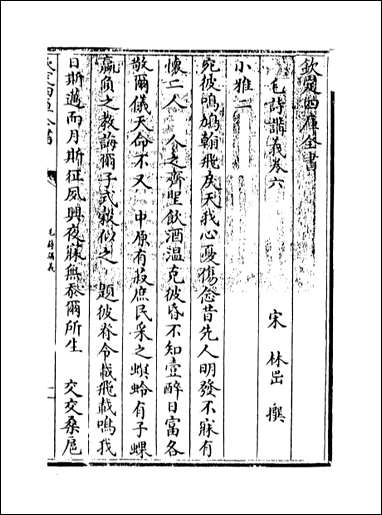 欽定四庫全書
毛詩講義卷六
宋 林岊 撰
小雅二
宛彼鳴鳩翰飛戾天我心憂傷念昔先人明發不寐有
懷二人 人之齊聖飲酒溫克彼昏不知壹醉日富各
敬爾儀天命不又 中原有菽庶民采之螟蛉有子蜾
蠃負之教誨爾子式穀似之 題彼脊令載飛載鳴我
日斯邁而月斯征夙興夜寐無忝爾所生 交交桑扈
毛詩講義